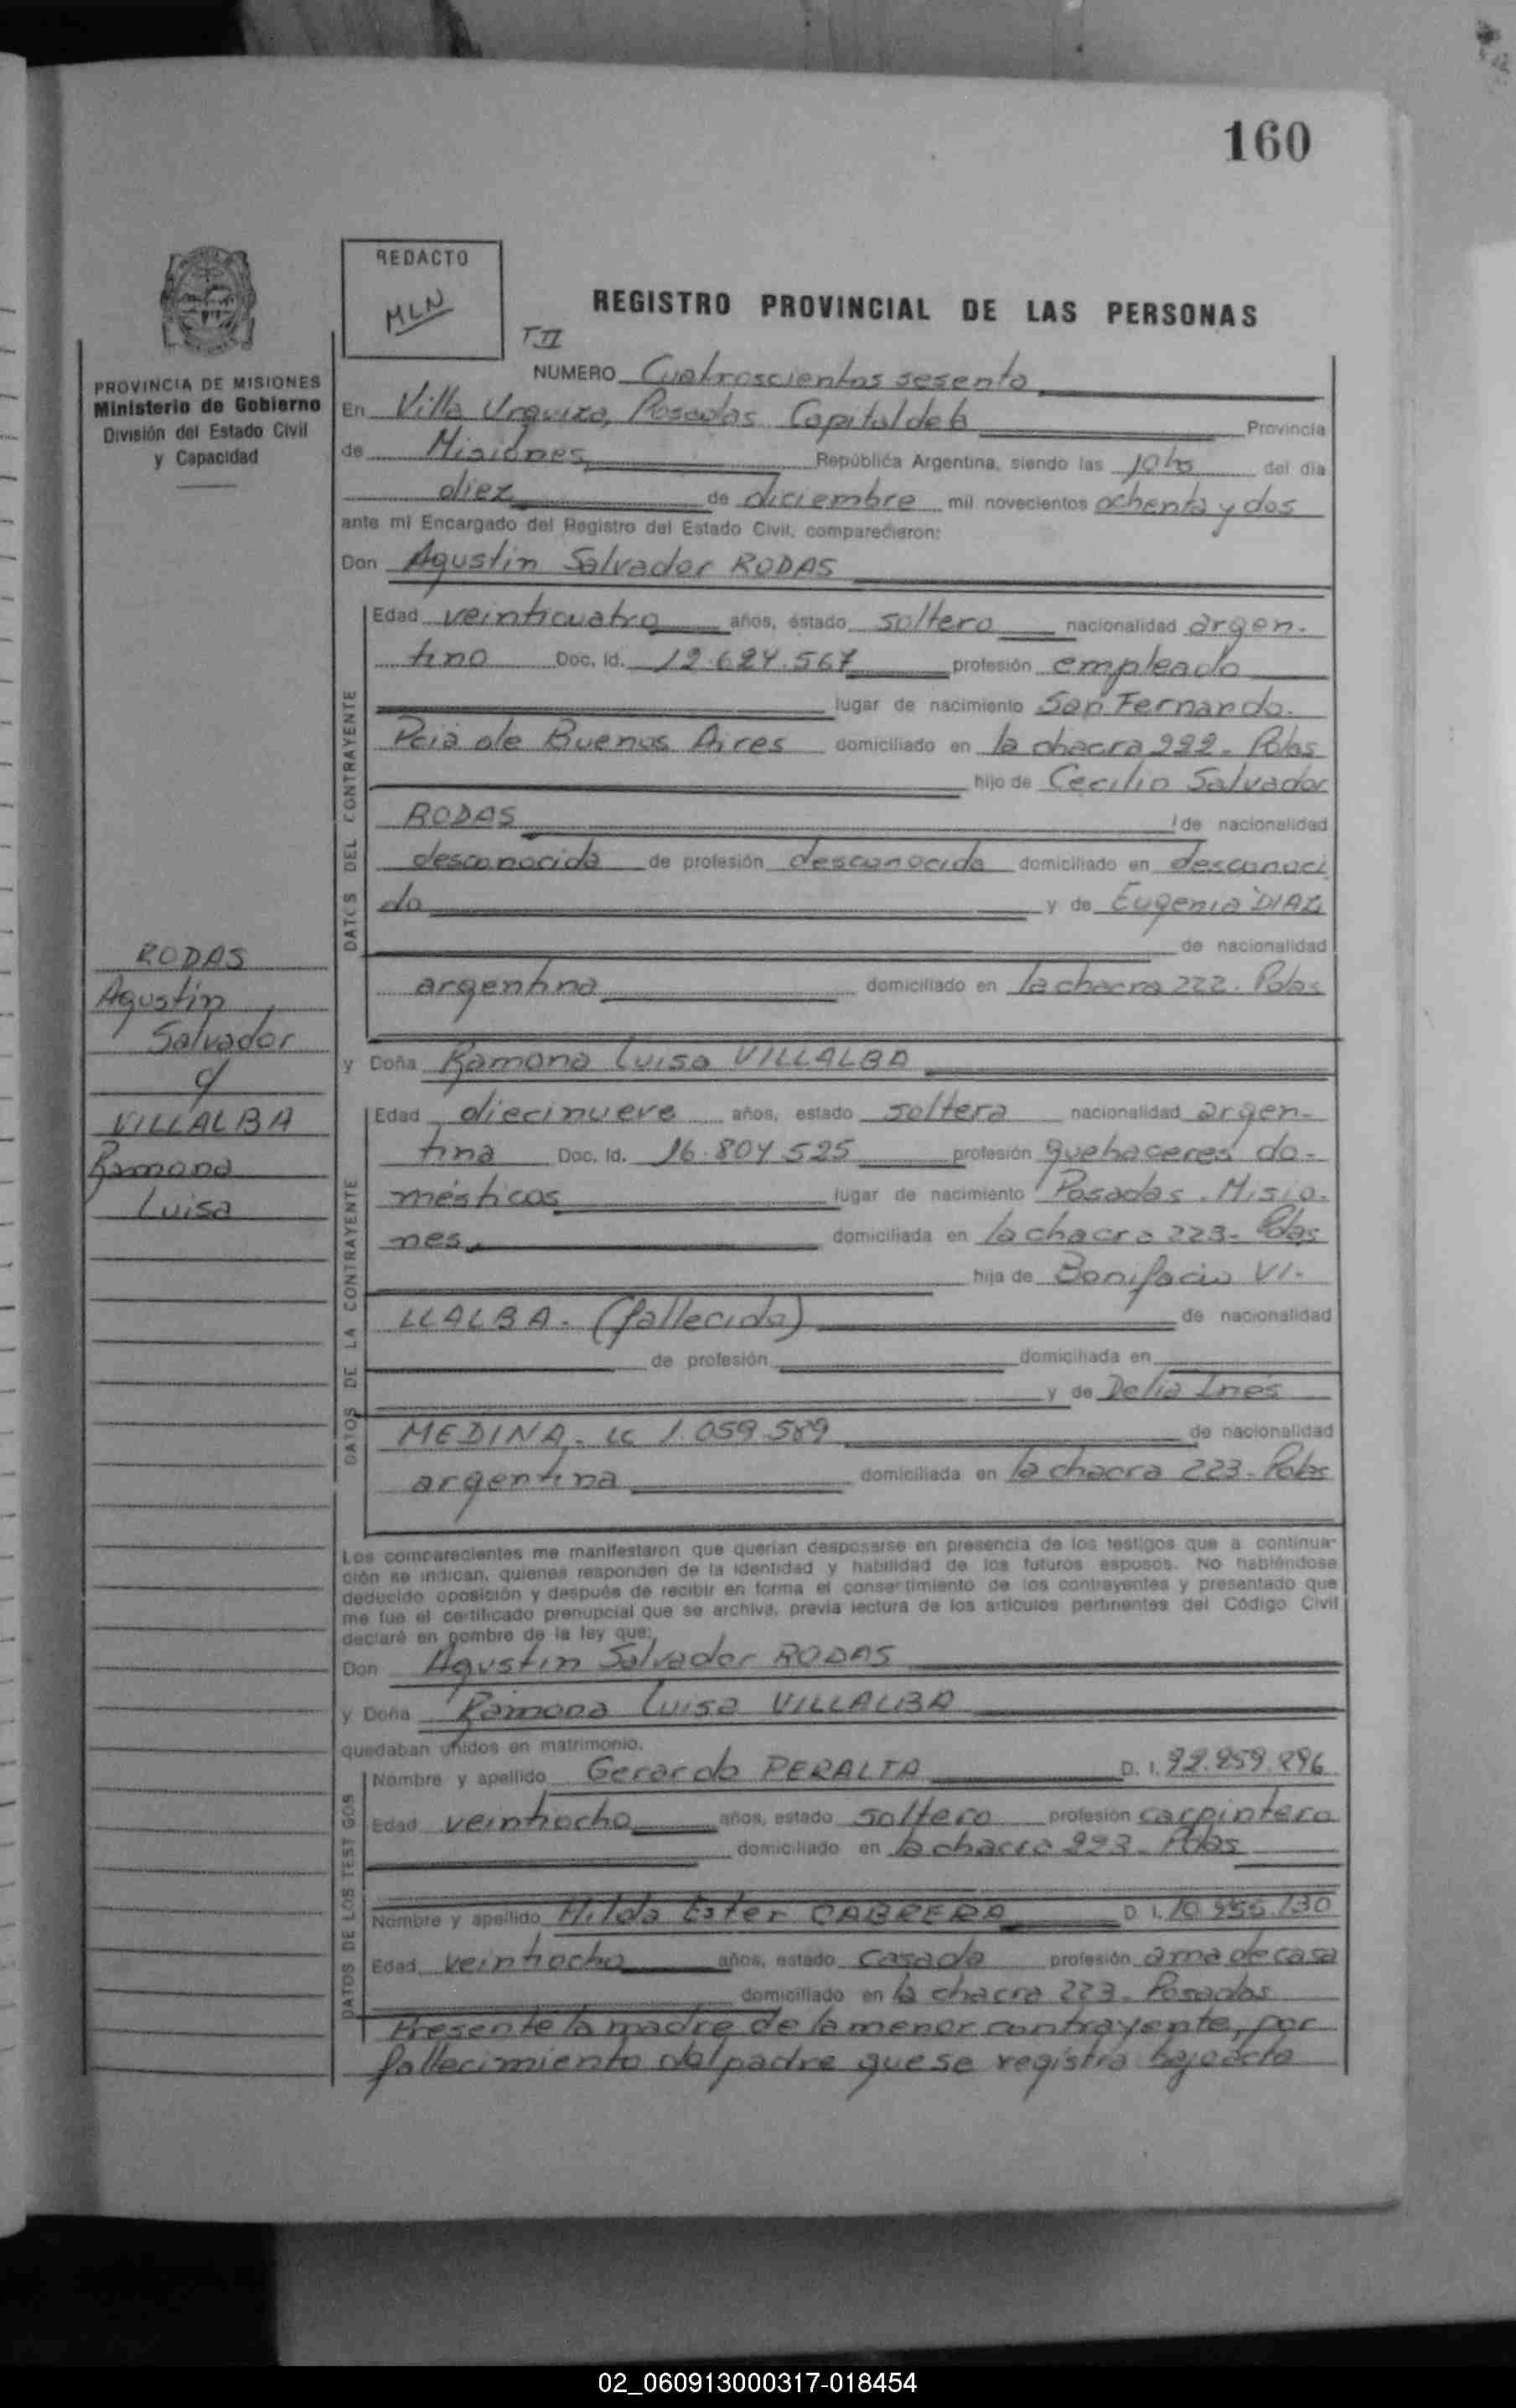 160
REDACTO
MLN
REGISTRO PROVINCIAL DE LAS PERSONAS
T.II
PROVINCIA DE MISIONES
Ministerio de Gobierno
División del Estado Civil
y Capacidad
NUMERO Cuatroscientos sesenta
En Villa Urquiza, Posadas Capital de la Provincia
de Misiones, República Argentina, siendo las 10hs del día
diez de diciembre mil novecientos ochenta y dos
ante mi Encargado del Registro del Estado Civil, comparecieron:
Don Agustin Salvador RODAS
DATOS DEL CONTRAYENTE
Edad veinticuatro años, estado soltero nacionalidad argen-
tino Doc. Id. 12.624.567 profesión empleado
lugar de nacimiento San Fernando.
Pcia de Buenos Aires domiciliado en la chacra 222- Pdas
hijo de Cecilio Salvador
RODAS de nacionalidad
desconocida de profesión desconocida domiciliado en desconoci
do y de Eugenia DIAZ
de nacionalidad
argentina domiciliado en la chacra 222. Pdas
RODAS
Agustin
Salvador
c/
VILLALBA
Ramona
Luisa
y Doña Ramona Luisa VILLALBA
DATOS DE LA CONTRAYENTE
Edad diecinueve años, estado soltera nacionalidad argen-
tina Doc. Id. 16.804.525 profesión quehaceres do-
mésticos lugar de nacimiento Posadas. Misio-
nes. domiciliada en la chacra 223- Pdas
hija de Bonifacio VI-
LLALBA. (fallecido) de nacionalidad
de profesión domiciliada en
y de Delia Inés
MEDINA- LC 1.059.589 de nacionalidad
argentina domiciliada en la chacra 223- Pdas
Los comparecientes me manifestaron que querían desposarse en presencia de los testigos que a continua-
ción se indican, quienes responden de la identidad y habilidad de los futuros esposos. No habiéndose
deducido oposición y después de recibir en forma el consertimiento de los contrayentes y presentado que
me fue el certificado prenupcial que se archiva, previa lectura de los artículos pertinentes del Código Civil
declaré en nombre de la ley que:
Don Agustin Salvador RODAS
y Doña Ramona Luisa VILLALBA
quedaban unidos en matrimonio.
DATOS DE LOS TESTIGOS
Nombre y apellido Gerardo PERALTA D. I. 92.259.296
Edad veintiocho años, estado soltero profesión carpintero
domiciliado en la chacra 223- Pdas
Nombre y apellido Hilda Ester CABRERA D I. 10.956.130
Edad veintiocho años, estado casada profesión ama de casa
domiciliado en la chacra 223- Posadas
Presente la madre de la menor contrayente, por
fallecimiento del padre que se registra bajo acta
02_060913000317-018454